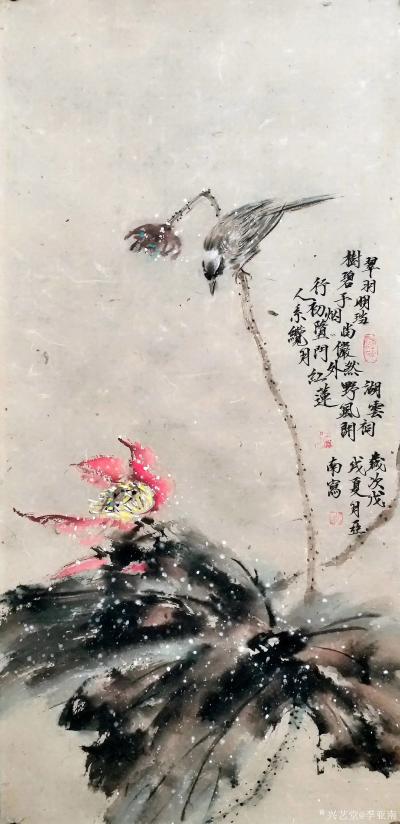 翠羽明珰 湖雲祠
樹碧于烟尚儼然野風開
行初墮門外紅蓮
人系纜月
歲次戊
戌夏月亞
南寫
兴艺堂@李亚南